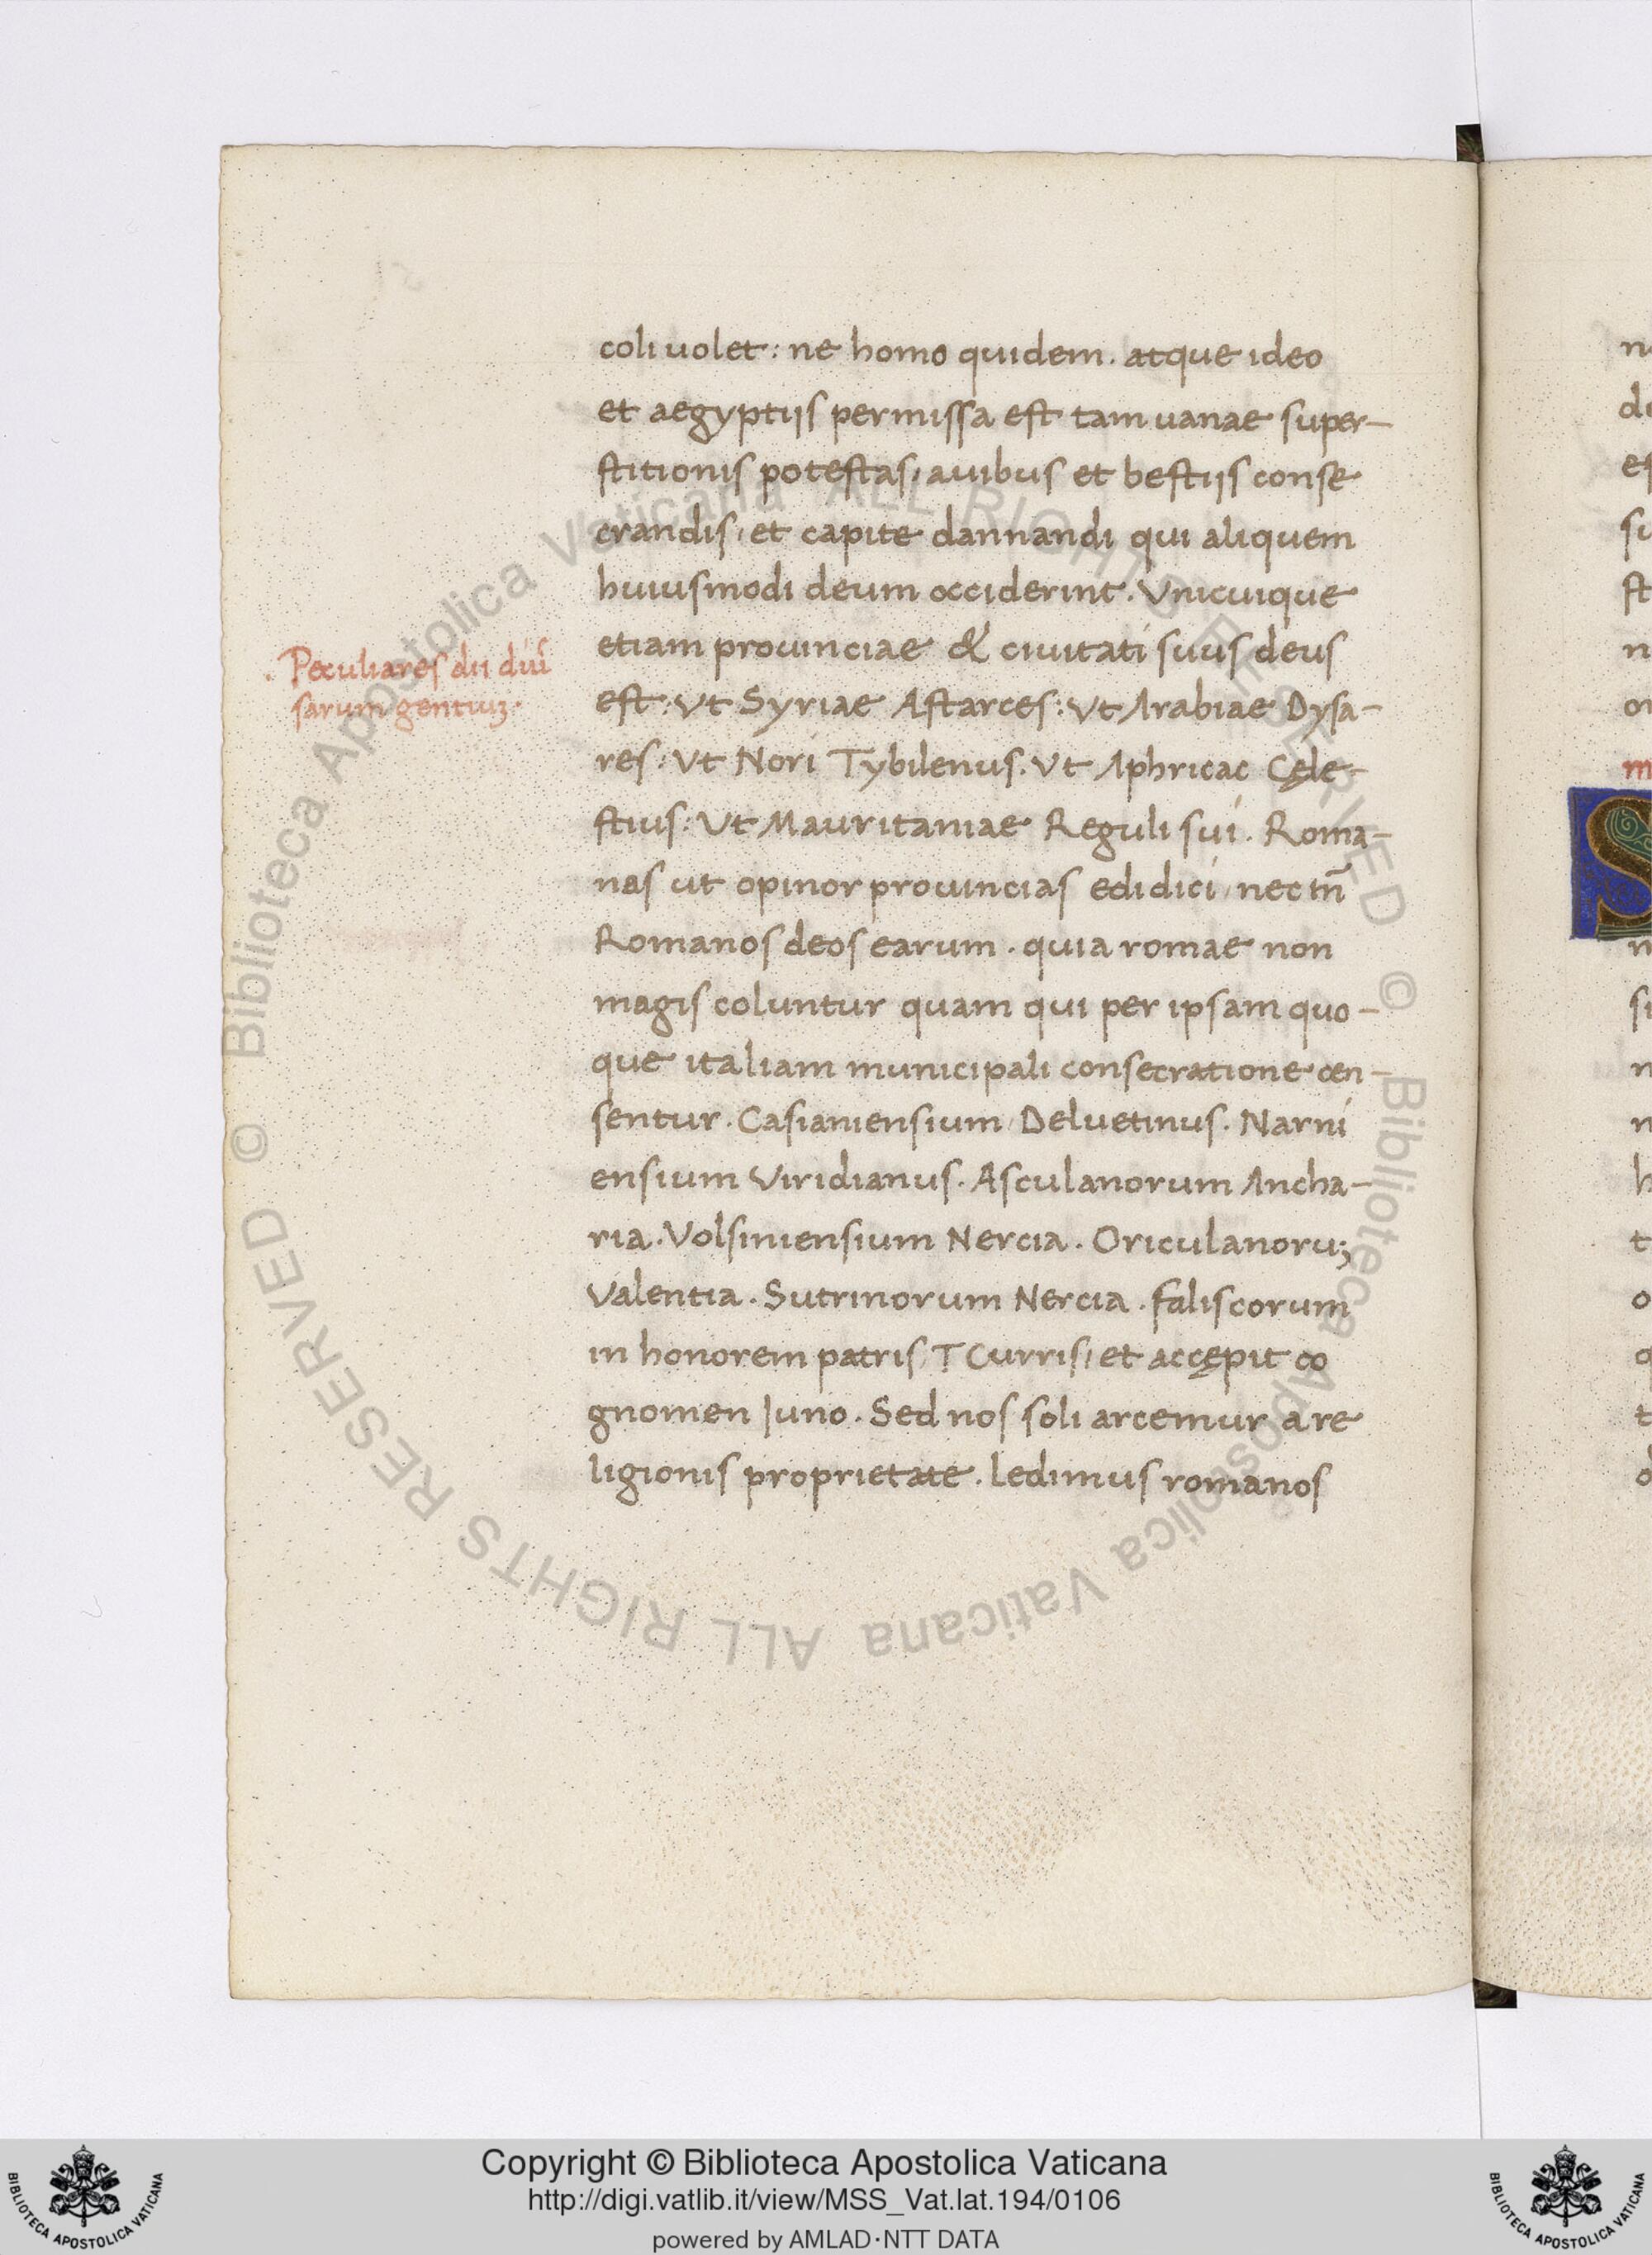 coli uolet: ne homo quidem. atque ideo
et aegyptijs permissa est tam uanae super-
stitionis potestas, auibus et bestijs conse
crandis, et capite dannandi qui aliquem
huiusmodi deum occiderint. Vnicuique
etiam prouinciae & ciuitati suus deus
est: Vt Syriae Astarces: Vt Arabiae Dysa-
res: Vt Nori Tybilenus. Vt Aphricac Cęle-
stius: Vt Mauritaniae Reguli sui. Roma-
nas ut opinor prouincias edidici, nec tñ
Romanos deos earum. quia romae non
magis coluntur quam qui per ipsam quo-
que italiam municipali consecratione cen-
sentur. Casianiensium, Deluetinus. Narni
ensium Viridianus. Asculanorum Ancha-
ria. Volsiniensium Nercia. Oriculanoruꝫ
Valentia. Sutrinorum Nercia. faliscorum
in honorem patris, T Curris, et accępit co
gnomen Iuno. Sed nos soli arcemur a re
ligionis proprietate. Ledimus romanos
. Peculiares dii
sarum gentiuꝫ.
n
d
es
su
st
n
o
m
S
n
si
n
n
h
t
o
q
t
© Biblioteca Apostolica Vaticana ALL RIGHTS RESERVED © Biblioteca Apostolica Vaticana ALL RIGHTS RESERVED
Copyright © Biblioteca Apostolica Vaticana
http://digi.vatlib.it/view/MSS_Vat.lat.194/0106
powered by AMLAD·NTT DATA
BIBLIOTECA APOSTOLICA VATICANA
BIBLIOTECA APOSTOLICA VATICANA